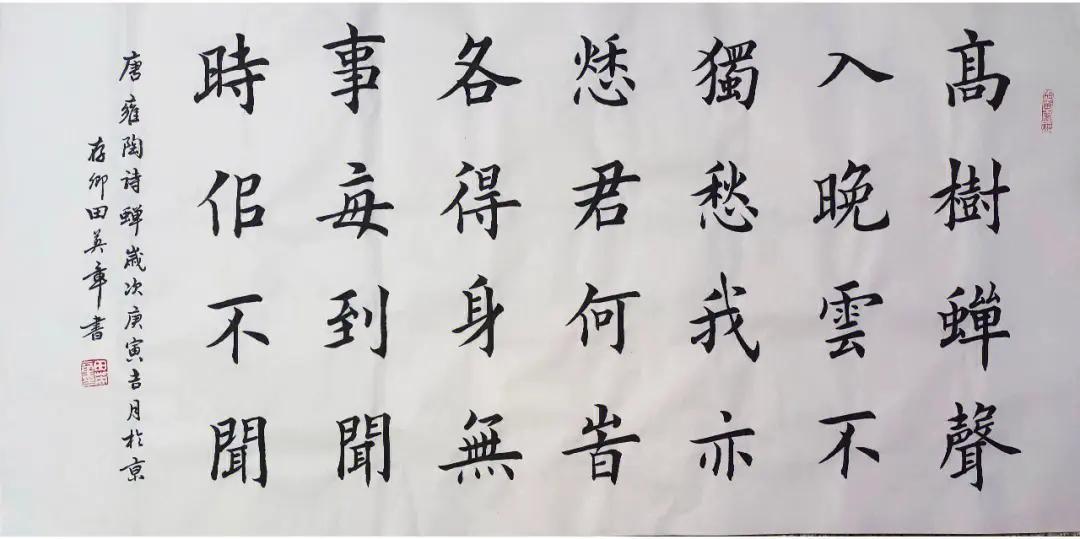 髙樹蟬聲
入晚雲不
獨愁我亦
愁君何旹
各得身無
事每到聞
時佀不聞
唐雍陶詩蟬歲次庚寅吉月於京
存卿田英章書